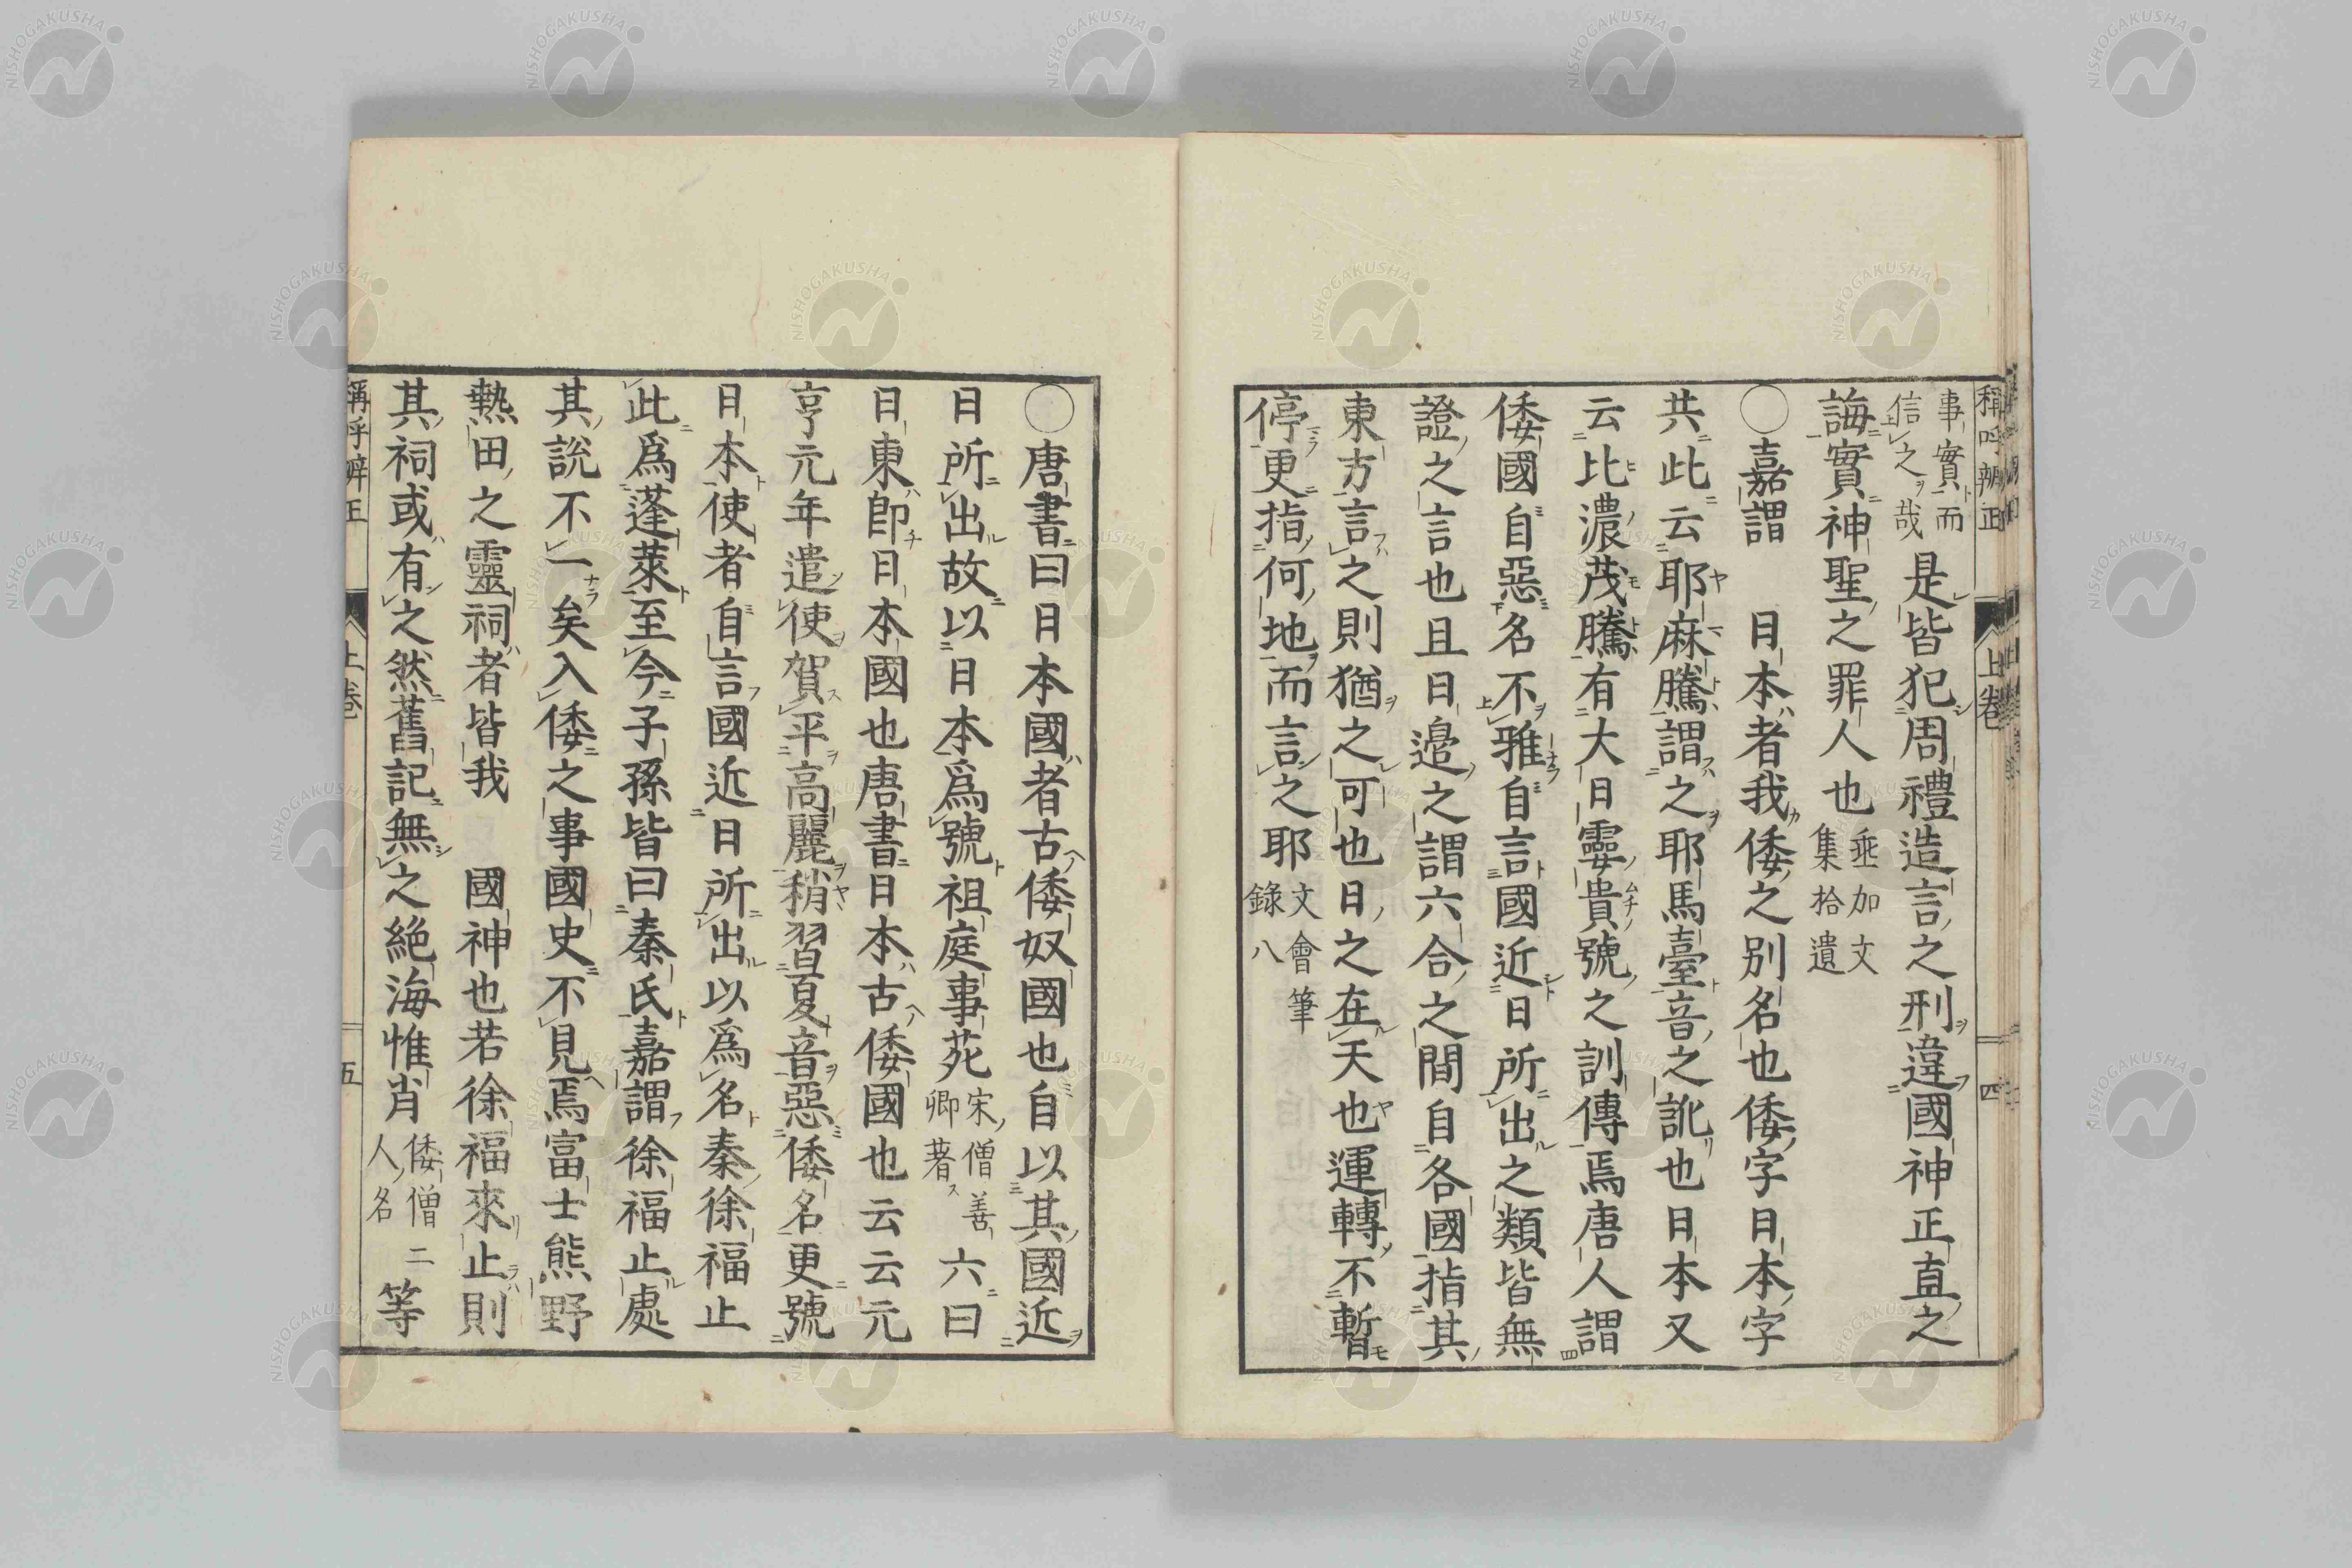 稱呼辨正 上卷 四
事實而信之哉是皆犯周禮造言之刑違國神正直之
誨實神聖之罪人也垂加文集拾遺
○嘉謂 日本者我倭之別名也倭字日本字
共此云耶麻騰謂之耶馬臺音之訛也日本又
云比濃茂騰有大日孁貴號之訓傳焉唐人謂
倭國自惡名不雅自言國近日所出之類皆無
證之言也且日邉之謂六合之間自各國指其
東方言之則猶之可也日之在天也運轉不暫
停更指何地而言之耶文會筆錄八
○唐書曰日本國者古倭奴國也自以其國近
日所出故以日本爲號祖庭事苑宋僧善卿著六曰
日東即日本國也唐書日本古倭國也云云元
亨元年遣使賀平高麗稍習夏音惡倭名更號
日本使者自言國近日所出以爲名秦徐福止
此爲蓬萊至今子孫皆曰秦氏嘉謂徐福止處
其說不一矣入倭之事國史不見焉富士熊野
熱田之靈祠者皆我 國神也若徐福來止則
其祠或有之然舊記無之絕海惟肖倭僧二人名等
稱呼辨正 上卷 五